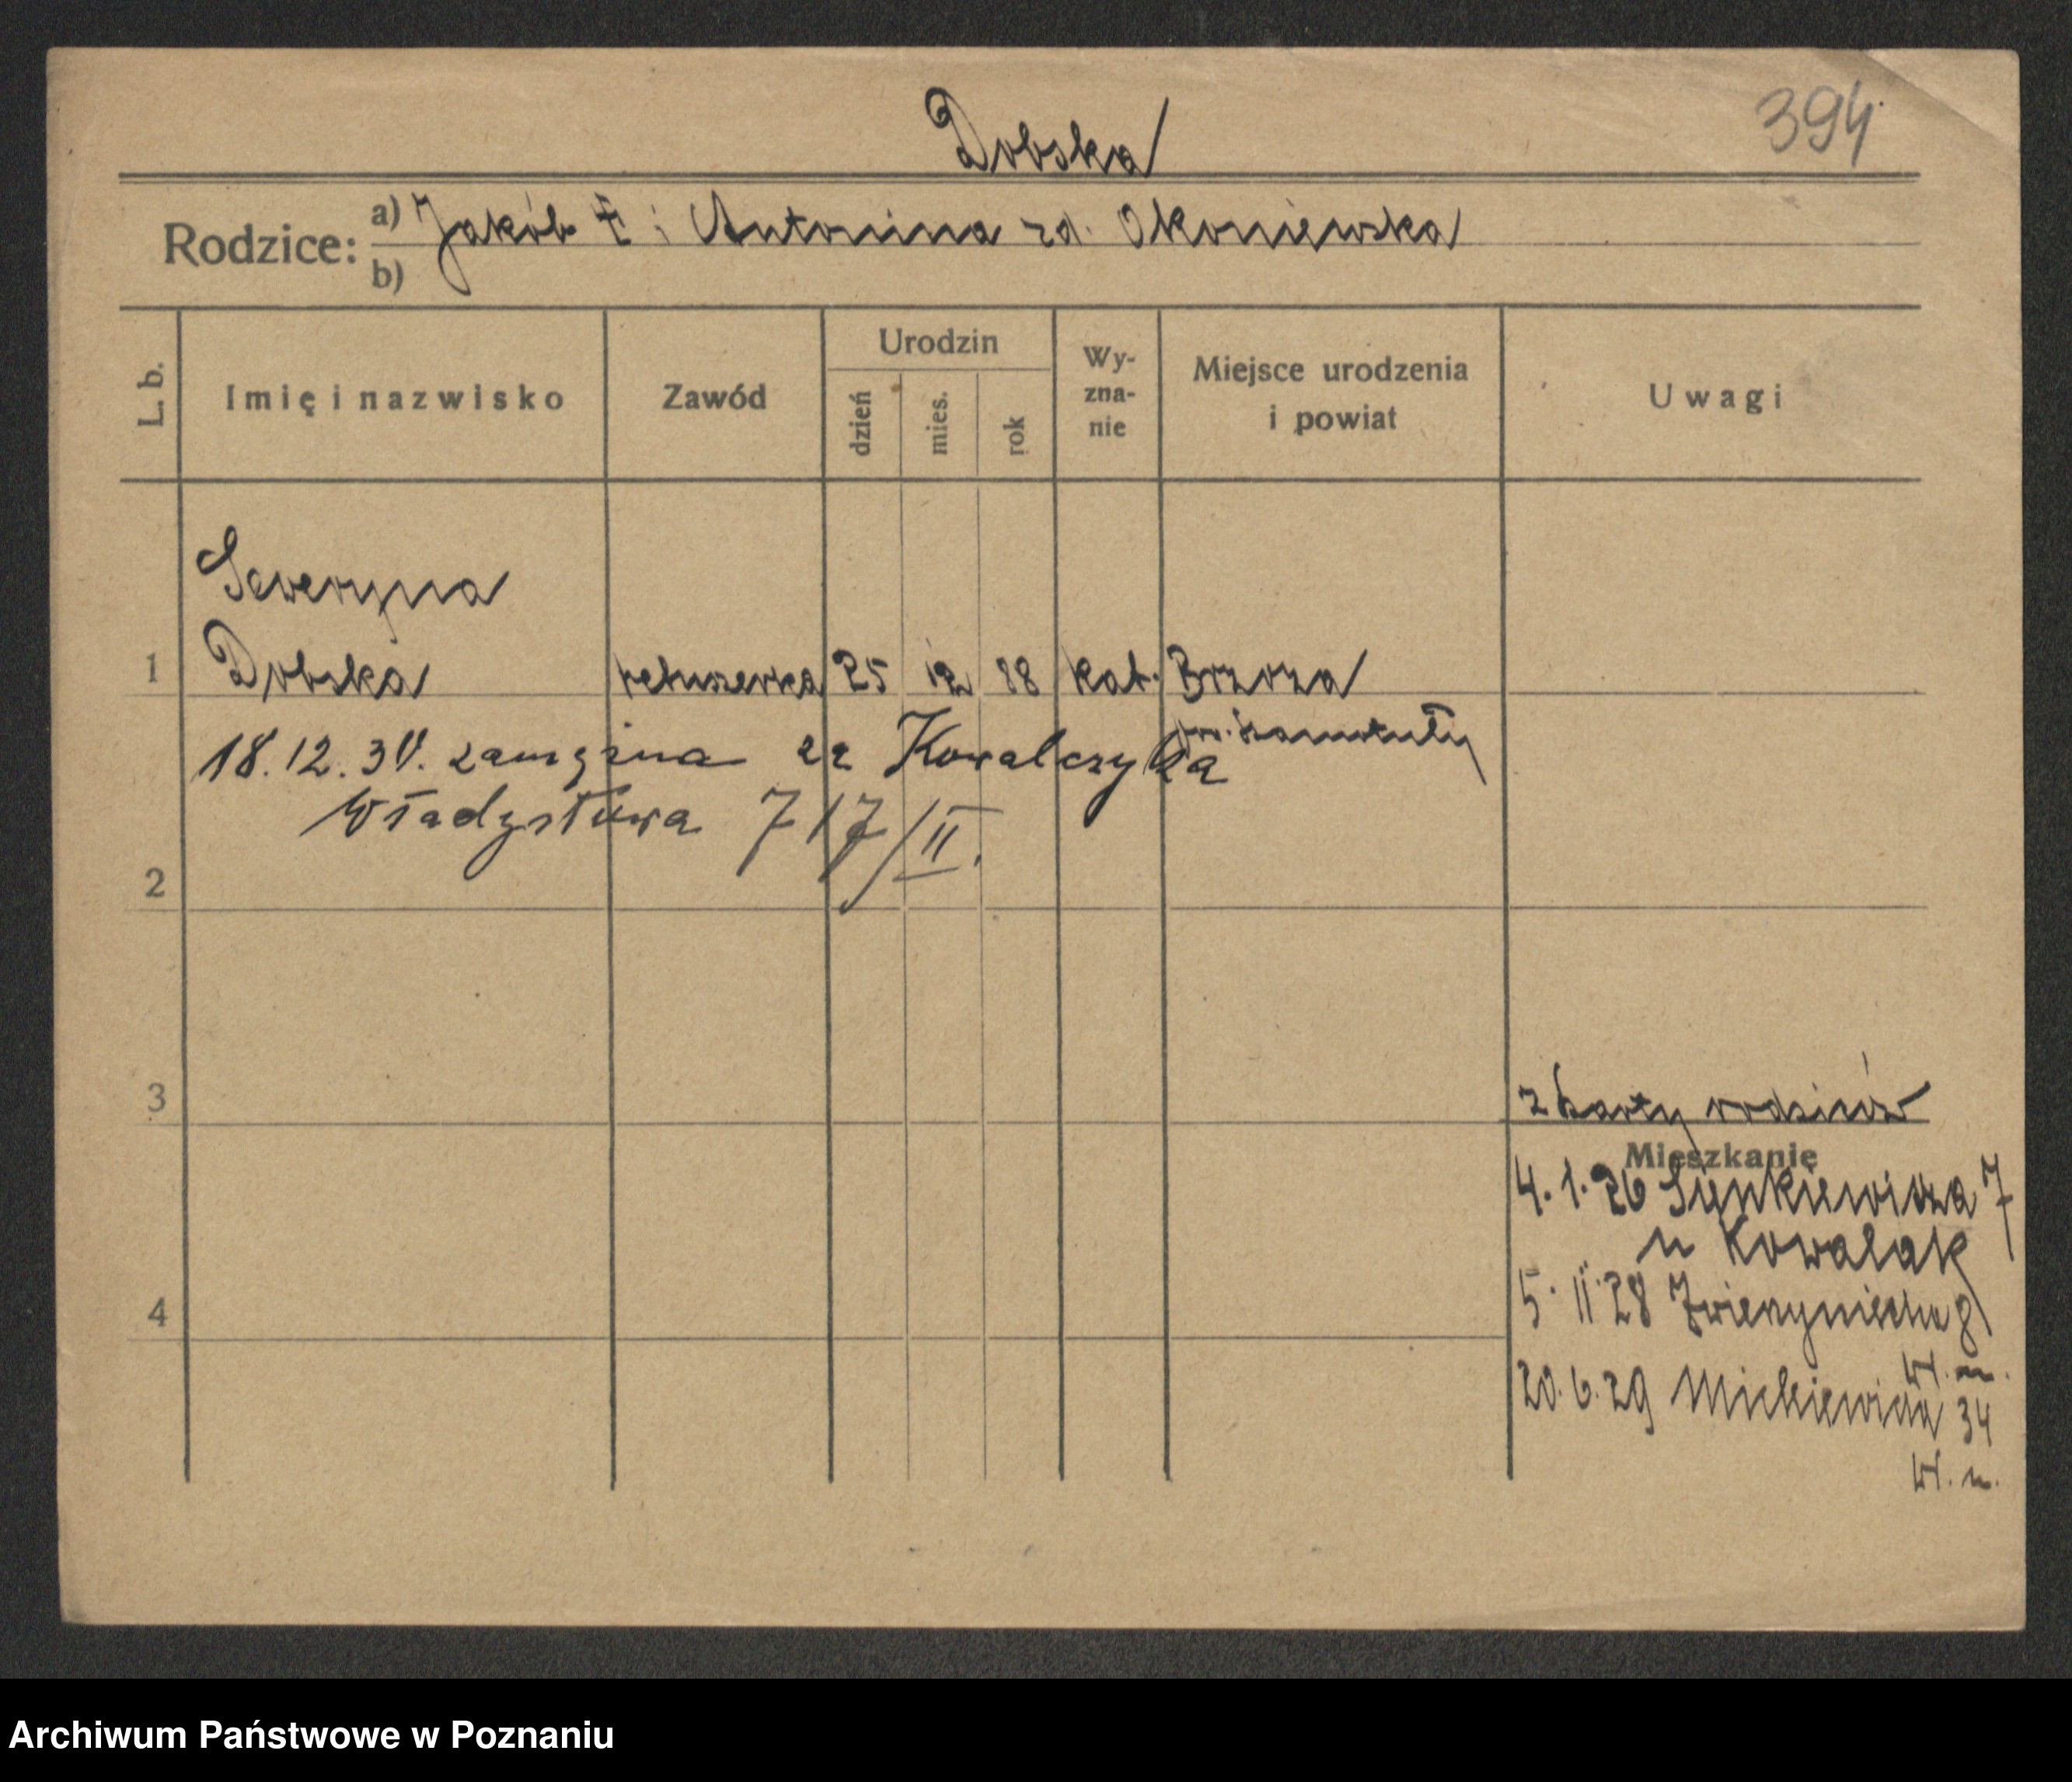 394
Dobska
Rodzice: a) Jakób † i Antonina zd. Okoniewska
b)
L. b. Imię i nazwisko Zawód Urodzin dzień mies. rok Wyznanie Miejsce urodzenia i powiat Uwagi
Seweryna
1 Dobska retuszerka 25 12 88 kat. Brzoza
pow. Szamotuły
18.12.30. zamężna za Kowalczyka
Władysława 717/II.
2
3
z karty rodziców
Mieszkanie
4.1.26 Sienkiewicza 7
u Kowalak
4
5 11 28 Zwierzyniecka 8
W. m.
20.6.29 Mickiewicza 34
W. m.
Archiwum Państwowe w Poznaniu